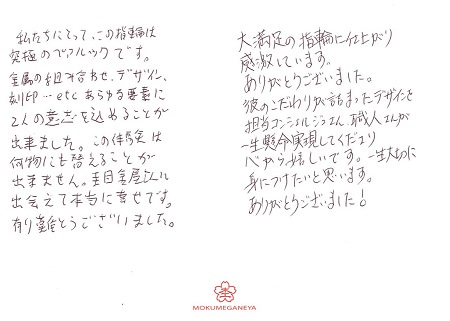 私たちにとって、この指輪は
究極のペアルックです。
金属の組み合わせ、デザイン、
刻印…etc あらゆる要素に
2人の意志を込めることが
出来ました。この体験は
何物にも替えることが
出来ません。杢目金屋さんに
出会えて本当に幸せです。
有り難とうございました。
大満足の指輪に仕上がり
感激しています。
ありがとうございました。
彼のこだわりが詰まったデザインを
担当コンシェルジュさん、職人さんが
一生懸命実現してくださり
心から嬉しいです。一生大切に
身につけたいと思います。
ありがとうございました!
MOKUMEGANEYA